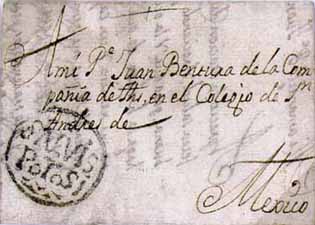 A mi Pe. Juan Bentura de la Com
pañia de Jhs, en el Colegio de Sn
Andres de
Mexico
S. LUIS
POTOSI